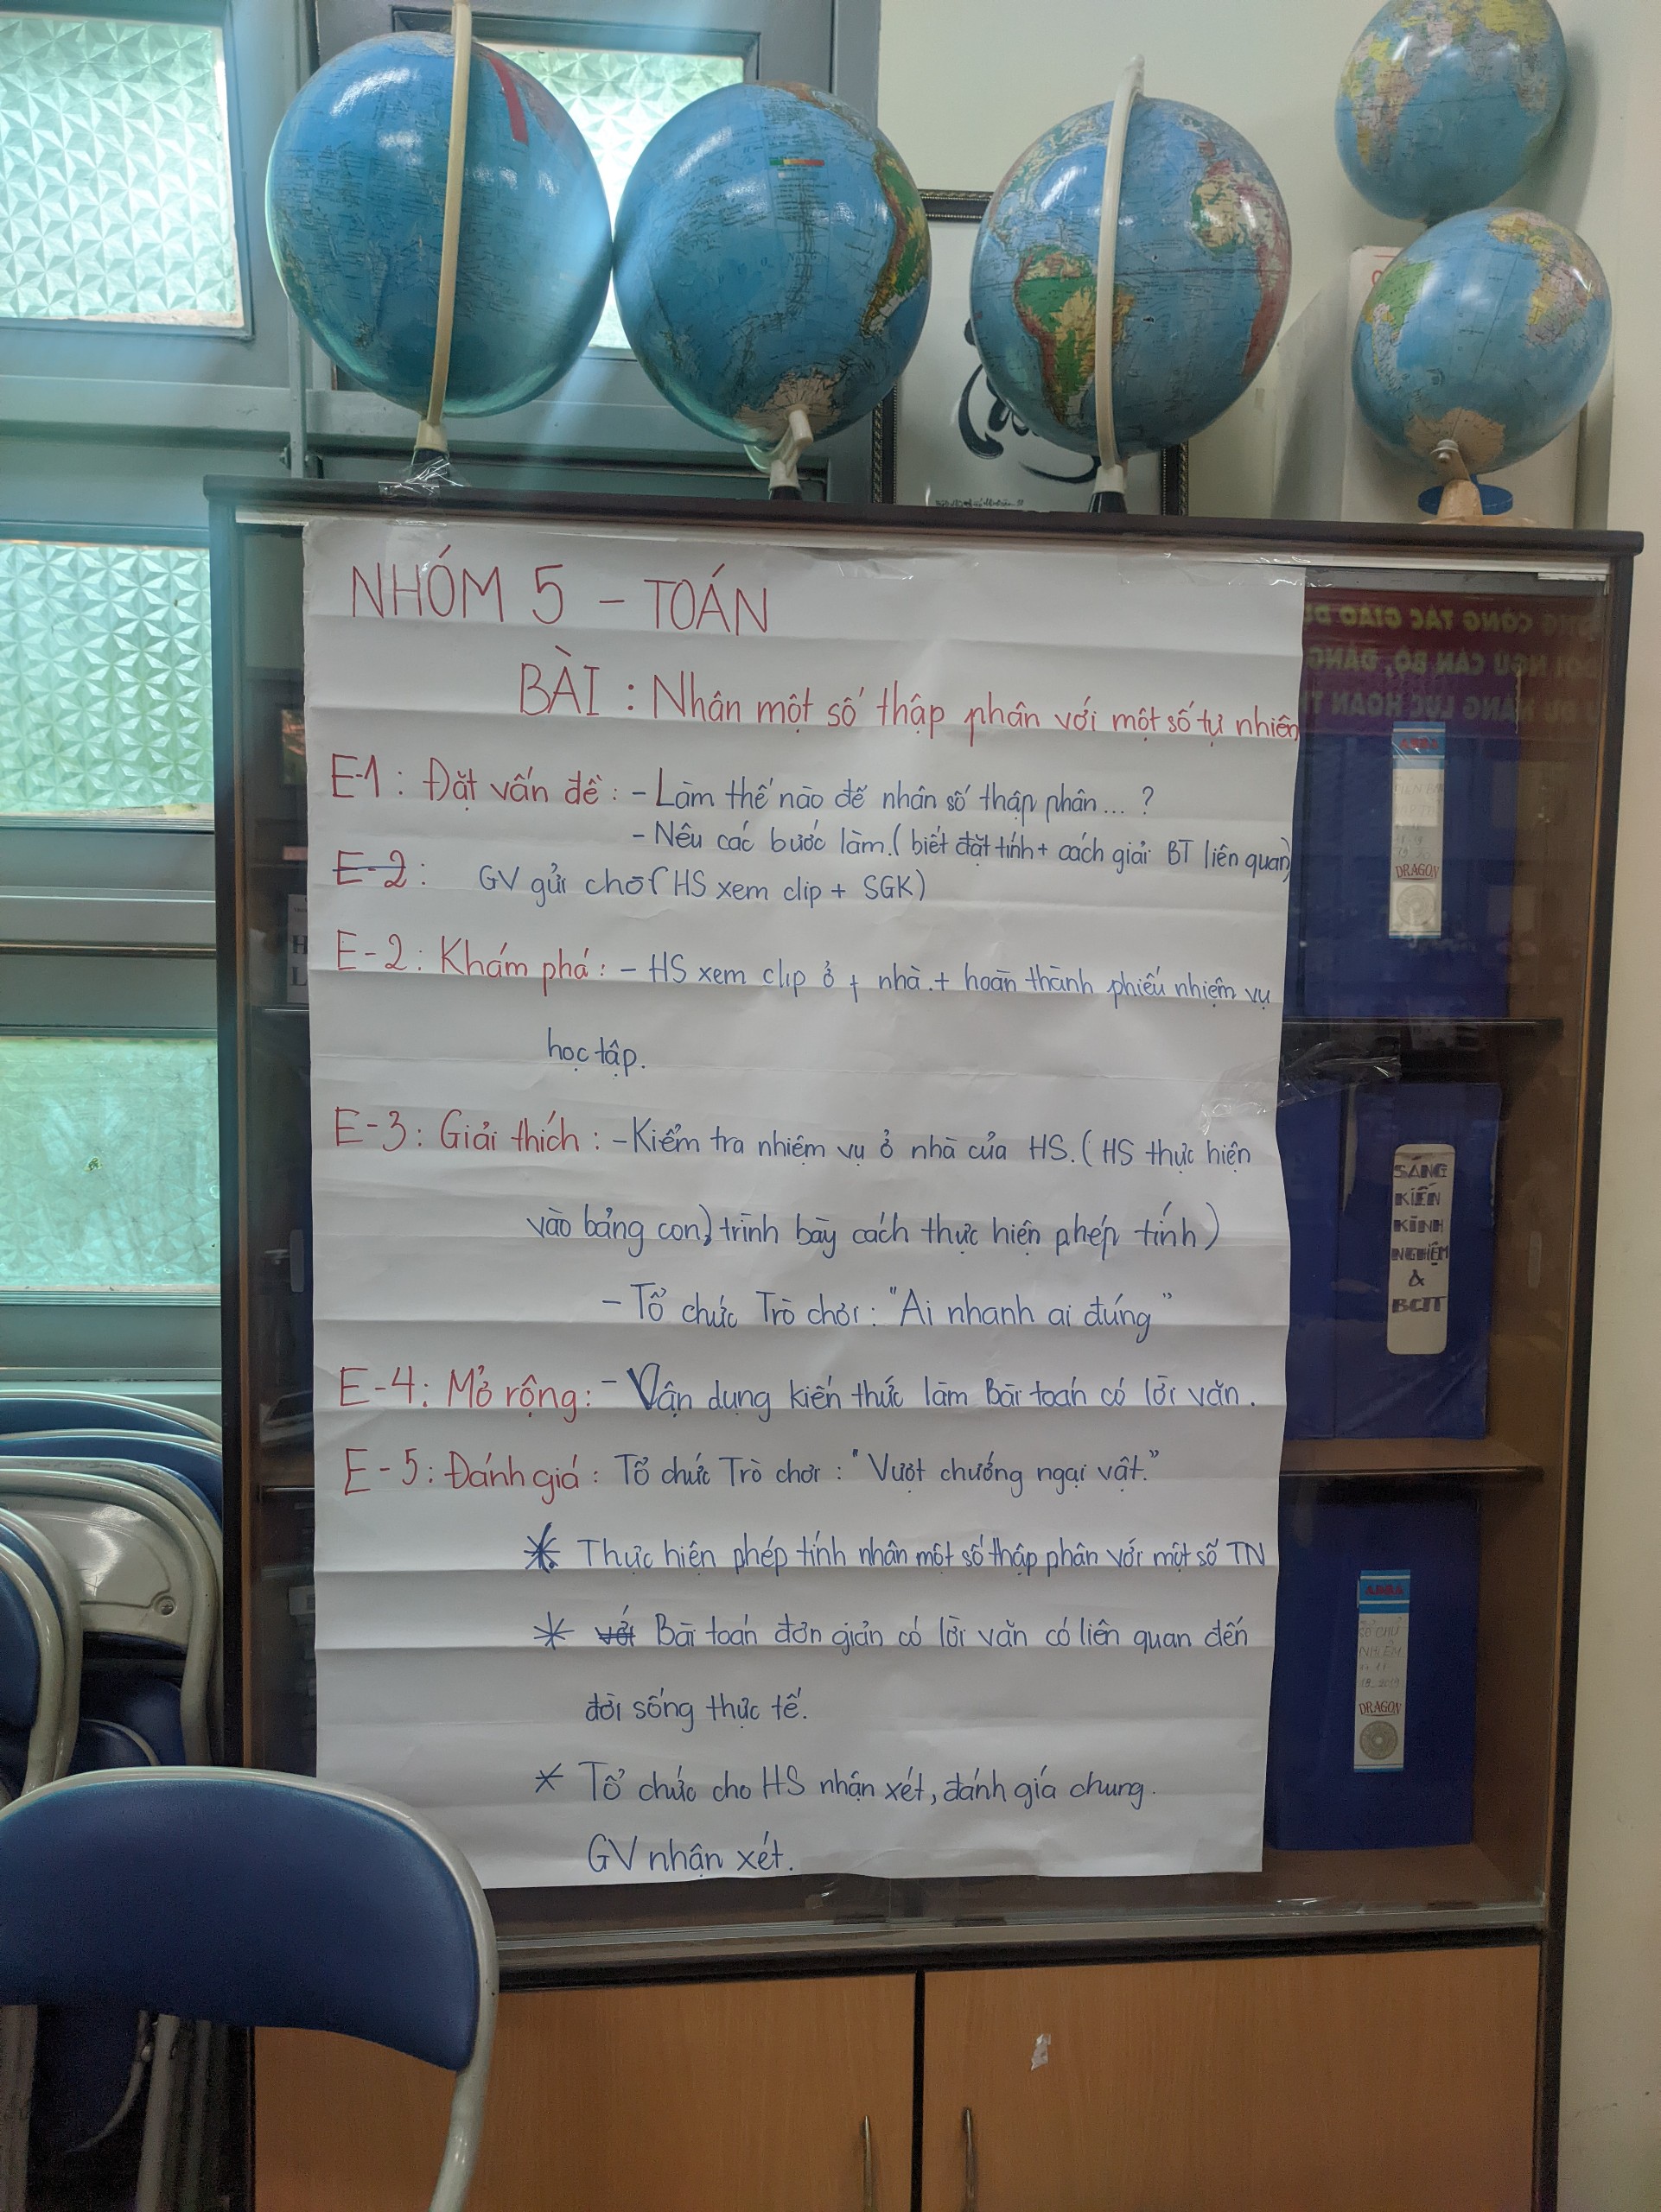 NHÓM 5 - TOÁN
BÀI : Nhân một số thập phân với một số tự nhiên
E-1 : Đặt vấn đề : - Làm thế nào để nhân số thập phân... ?
- Nêu các bước làm. (biết đặt tính + cách giải BT liên quan)
E-2 : GV gửi cho (HS xem clip + SGK)
E-2 : Khám phá : - HS xem clip ở nhà. + hoàn thành phiếu nhiệm vụ
học tập.
E-3 : Giải thích : - Kiểm tra nhiệm vụ ở nhà của HS. (HS thực hiện
vào bảng con, trình bày cách thực hiện phép tính)
- Tổ chức Trò chơi : "Ai nhanh ai đúng"
E-4 : Mở rộng : - Vận dụng kiến thức làm Bài toán có lời văn.
E-5 : Đánh giá : Tổ chức Trò chơi : "Vượt chướng ngại vật."
* Thực hiện phép tính nhân một số thập phân với một số TN
* với Bài toán đơn giản có lời văn có liên quan đến
đời sống thực tế.
* Tổ chức cho HS nhận xét, đánh giá chung.
GV nhận xét.
DRAGON
SÁNG
KIẾN
KINH
NGHIỆM
&
BCTT
DRAGON